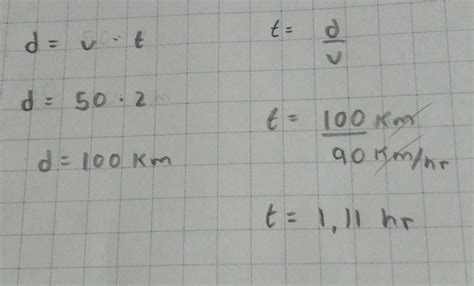 d = v · t
d = 50 · 2
d = 100 Km
t = d
v
t = 100 Km
90 Km/hr
t = 1,11 hr